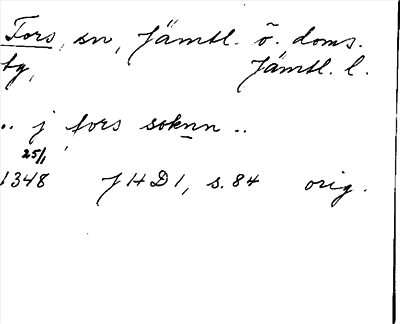 Fors, sn, Jämtl. ö. doms.
tg, Jämtl. l.
.. j fors soknn ..
25/1
1348 JHD1, s. 84 orig.